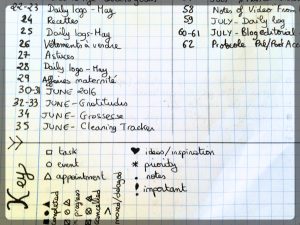 22-23 Daily logs - May
24 Recettes
25 Daily logs - May
26 Vêtements à vendre
27 Astuces
28 Daily logs - May
29 Affaires maternité
30-31 JUNE 2016
32-33 JUNE - Gratitudes
34 JUNE - Grossesse
35 JUNE - Cleaning Tracker
58 Notes of Video From
59 JULY - Daily log
60-61 JULY - Blog editorial
62
Key
□ task
○ event
△ appointment
completed
in progress
cancelled
moved/delayed
♥ ideas/inspiration
* priority
· notes
! important